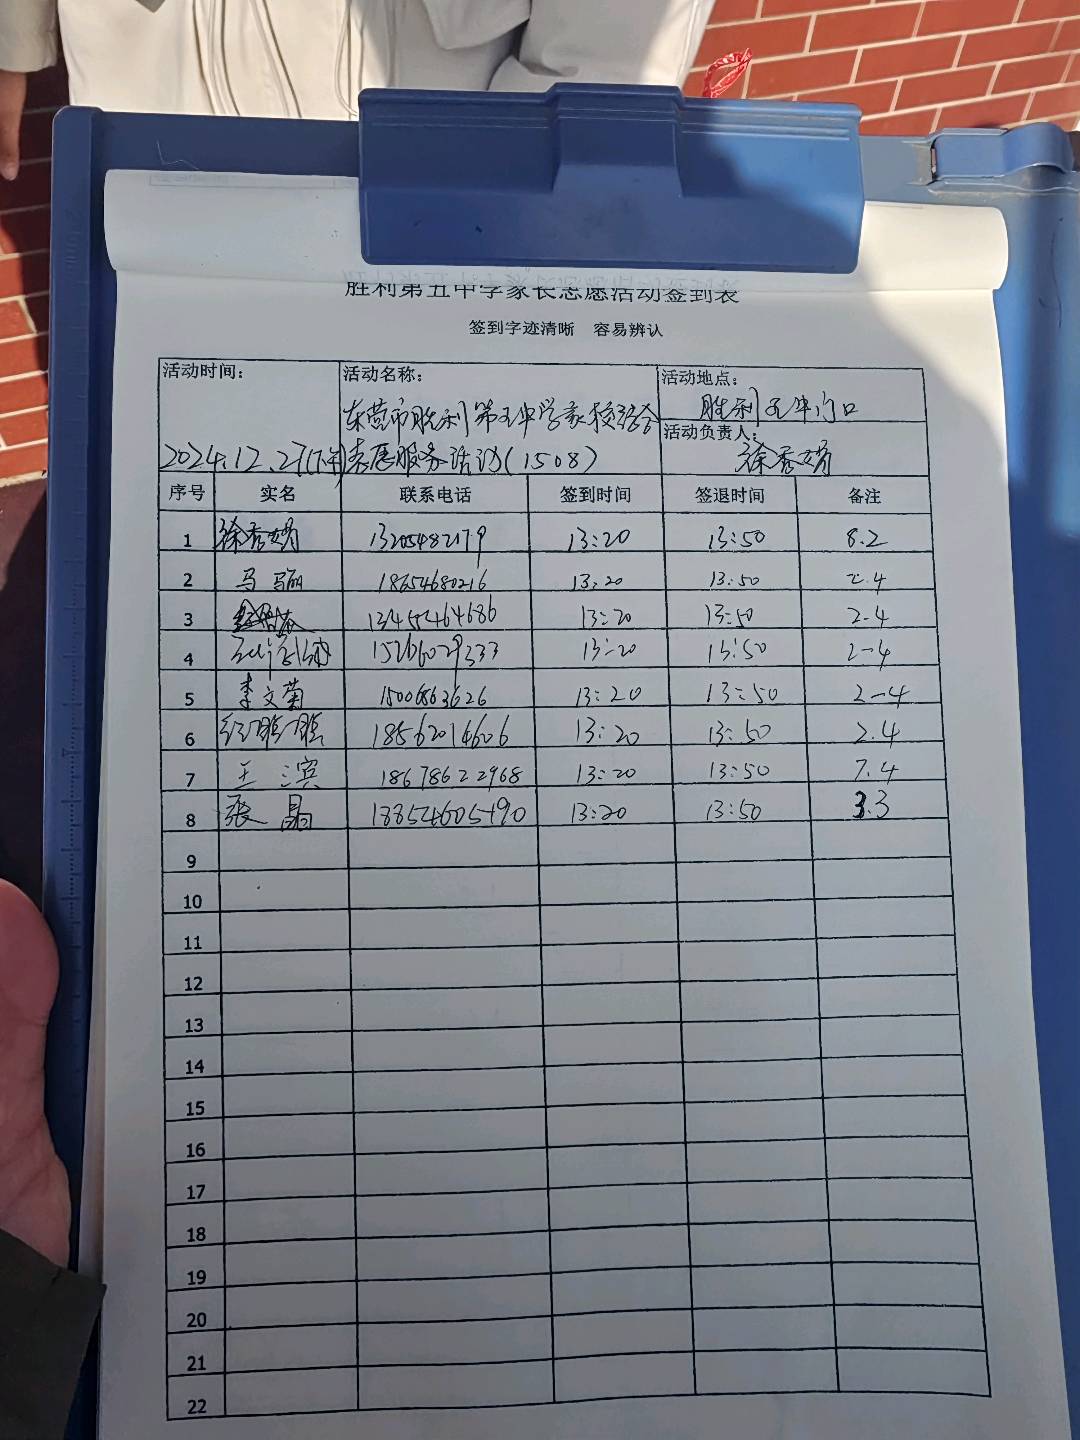 胜利第五中学家长志愿活动签到表
签到字迹清晰 容易辨认
活动时间: 2024.12.27(下午)
活动名称: 东营市胜利第五中学家校结合
志愿服务活动(1508)
活动地点: 胜利五中门口
活动负责人: 徐秀娟
序号 实名 联系电话 签到时间 签退时间 备注
1 徐秀娟 13205482179 13:20 13:50 8.2
2 马骊 18654680216 13:20 13:50 2.4
3 13455464686 13:20 13:50 2-4
4 15266029333 13:20 13:50 2-4
5 李文菊 15006863626 13:20 13:50 2-4
6 18562014606 13:20 13:50 2.4
7 王滨 18678622968 13:20 13:50 7.4
8 张晶 18854605490 13:20 13:50 3.3
9
10
11
12
13
14
15
16
17
18
19
20
21
22